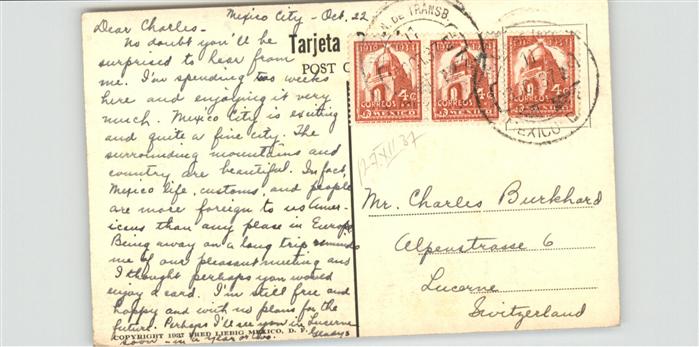 Mexico City - Oct. 22
Dear Charles -
No doubt you'll be
surprised to hear from
me. I'm spending two weeks
here and enjoying it very
much. Mexico City is exciting
and quite a fine city. The
surrounding mountains and
country are beautiful. In fact,
Mexico life, customs, and people
are more foreign to us Amer-
icans than any place in Europe.
Being away on a long trip reminds
me of our pleasant meeting and
I thought perhaps you would
enjoy a card. I'm still free and
happy and with no plans for the
future. Perhaps I'll see you in Lucerne
soon - in a year or two.
Gladys
COPYRIGHT 1937 FRED LIEBIG MEXICO, D. F.
Tarjeta
POST C
DE TRANSB
MEXICO D.
1910 1935
4¢
CORREOS
MEXICO
1910 1935
4¢
CORREOS
MEXICO
1910 1935
4¢
CORREOS
MEXICO
127.XII 37
Mr. Charles Burkhard
Alpenstrasse 6
Lucerne
Switzerland